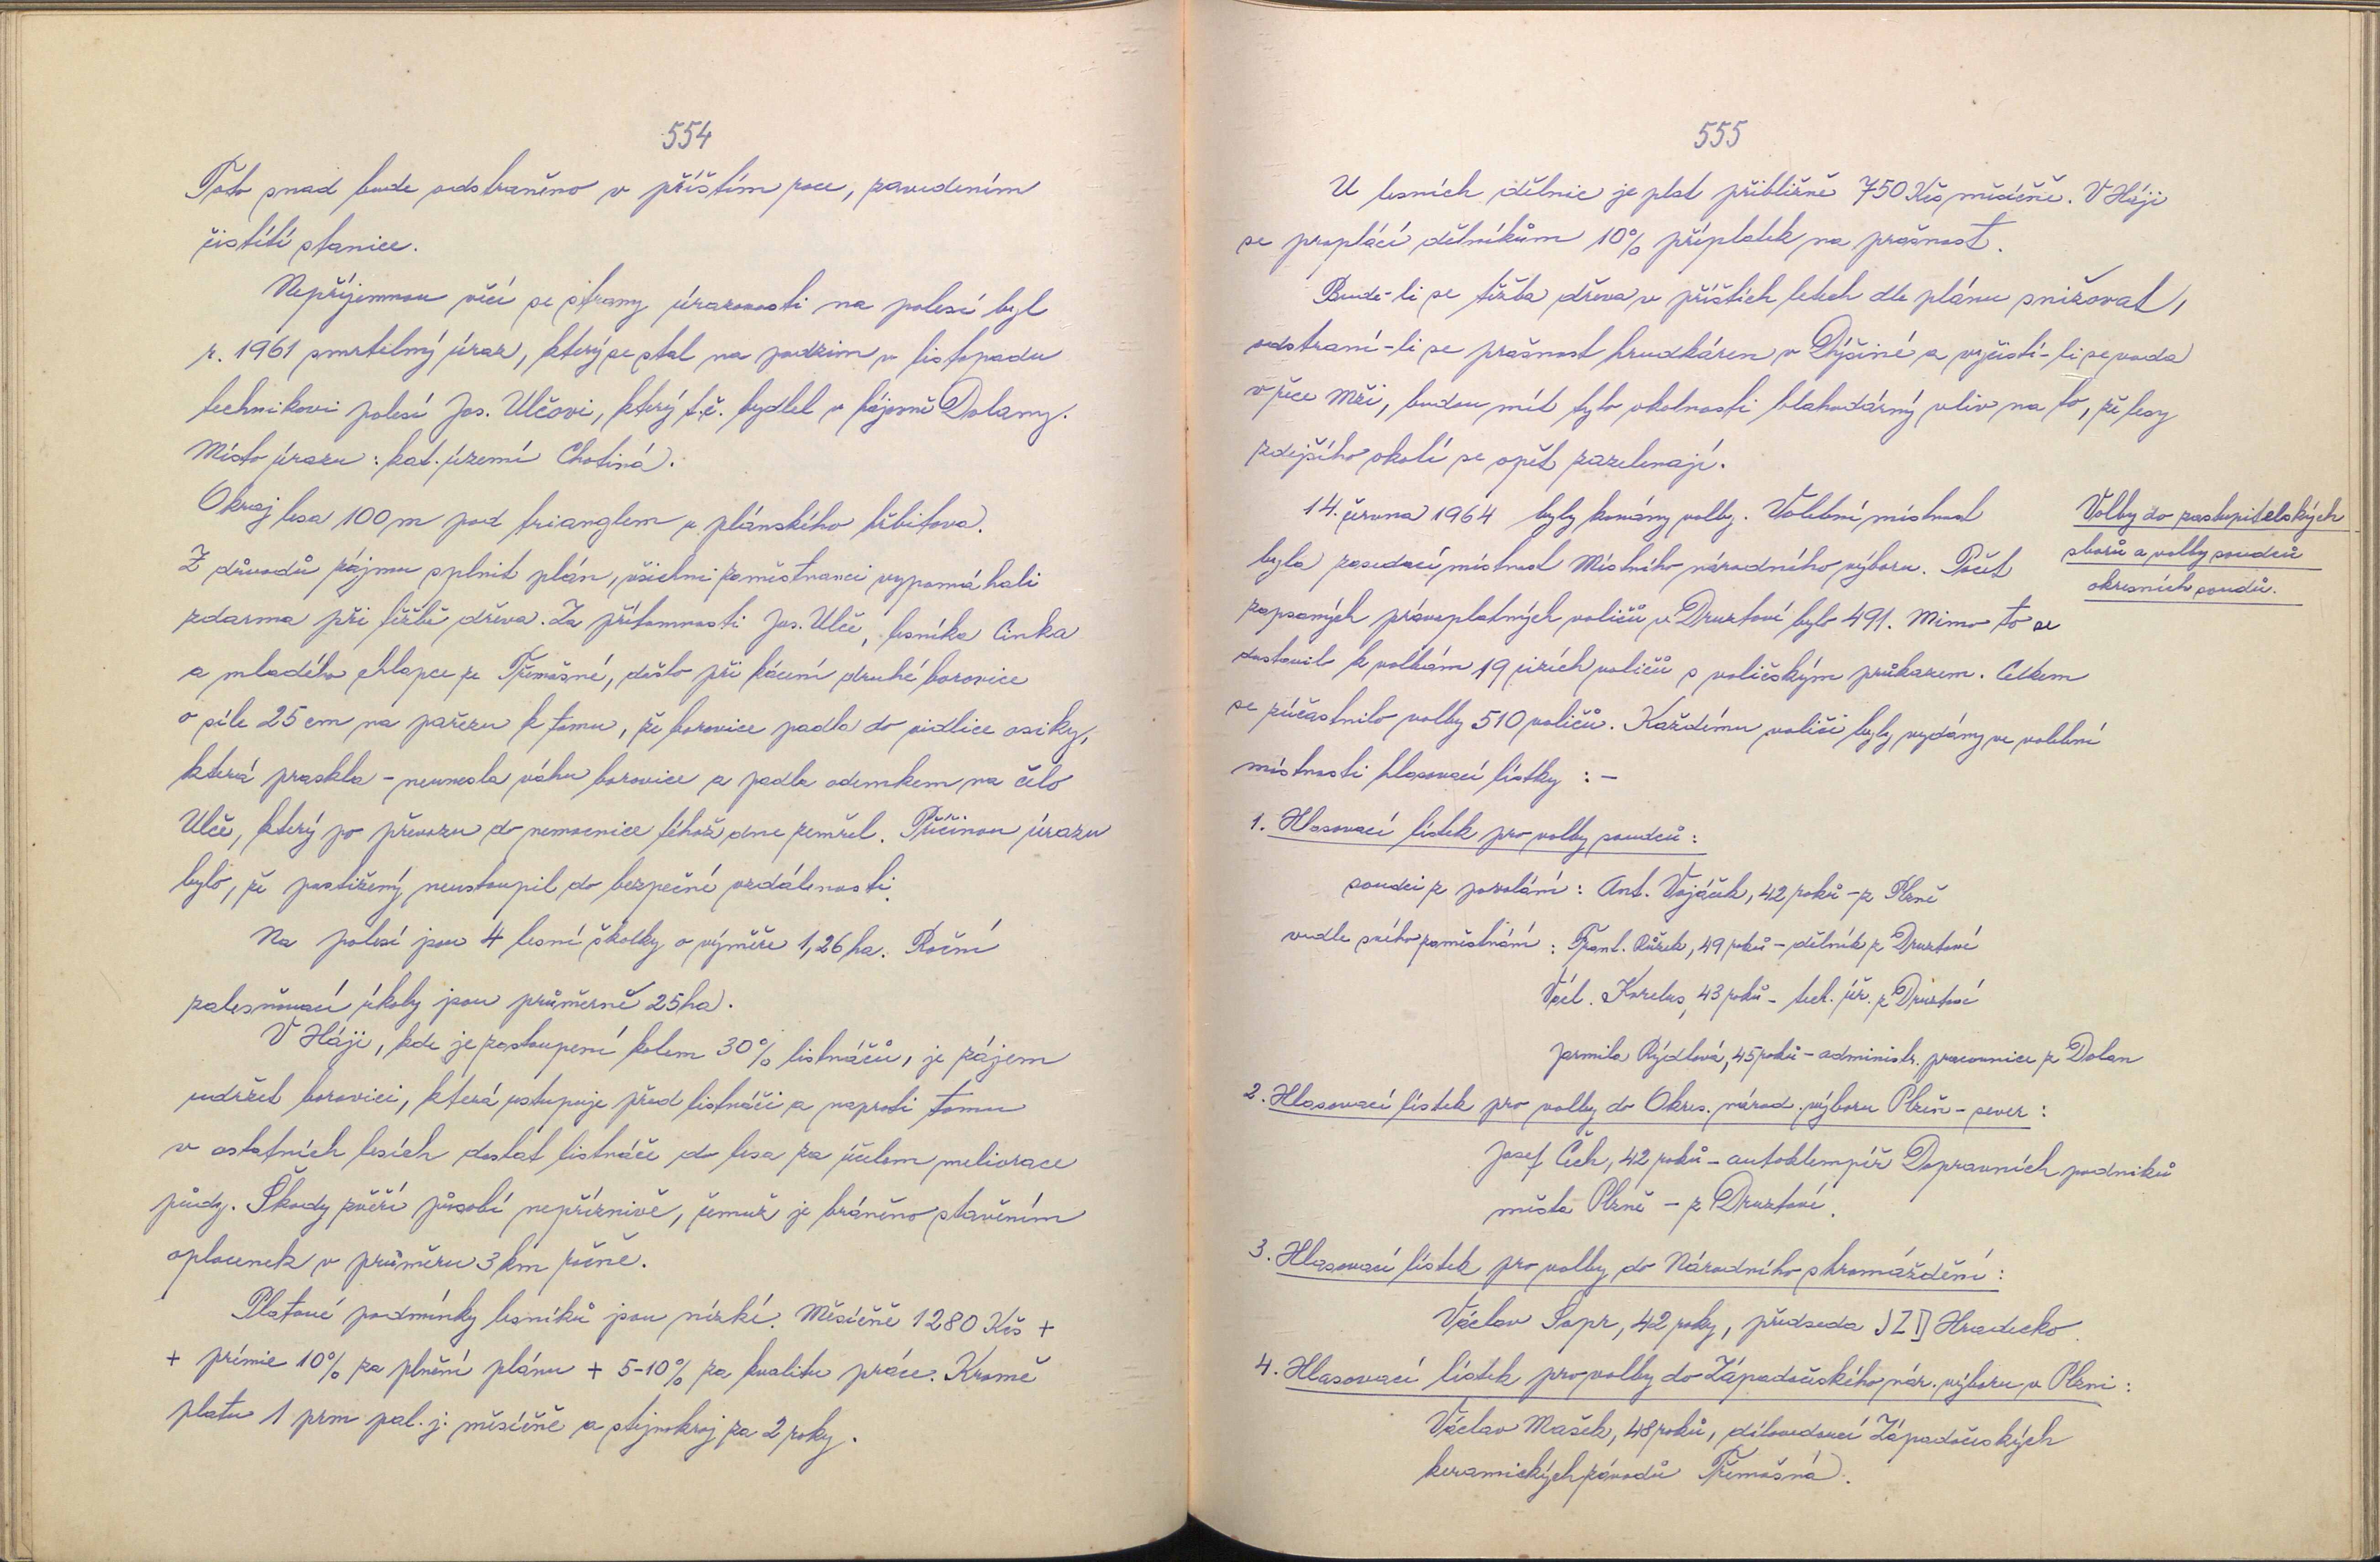 554
Toto snad bude odstraněno v příštím roce, zavedením
čistící stanice.
Nepříjemnou věcí se strany úrazovosti na polesí byl
r. 1961 smrtelný úraz, který se stal na podzim v listopadu
technikovi polesí Jos. Ulčovi, který t.č. bydlel v hájovně Dolany.
Místo úrazu: kat. území Chotiná.
Okraj lesa 100 m pod trianglem u plánského hřbitova.
Z důvodů zájmu splnit plán, všichni zaměstnanci vypomáhali
zdarma při těžbě dřeva. Za přítomnosti Jos. Ulče, lesníka Cinka
a mladého chlapce ze Třemošné, došlo při kácení druhé borovice
o síle 25 cm na pařezu k tomu, že borovice padla do vidlice osiky,
která praskla - neunesla váhu borovice a padla odemkem na čelo
Ulče, který po převozu do nemocnice téhož dne zemřel. Příčinou úrazu
bylo, že postižený neustoupil do bezpečné vzdálenosti.
Na polesí jsou 4 lesní školky o výměře 1,26 ha. Roční
zalesňovací úkoly jsou průměrně 25 ha.
V Háji, kde je zastoupení kolem 30% listnáčů, je zájem
udržet borovici, která ustupuje před listnáči a naproti tomu
v ostatních lesích dostat listnáče do lesa za účelem meliorace
půdy. Škody zvěří působí nepříznivě, čemuž je bráněno stavěním
oplocenek v průměru 3 km ročně.
Platové podmínky lesníků jsou nízké. Měsíčně 1280 Kčs +
+ prémie 10% za plnění plánu + 5-10% za kvalitu práce. Kromě
platu 1 prm pal. j. měsíčně a stejnokroj za 2 roky.
555
U lesních dělnic je plat přibližně 750 Kčs měsíčně. V Háji
se proplácí dělníkům 10% příplatek na prašnost.
Bude-li se těžba dřeva v příštích letech dle plánu snižovat,
odstraní-li se prašnost hrudkáren v Dýšiné a vyčistí-li se voda
v řece Mži, budou mít tyto okolnosti blahodárný vliv na to, že lesy
zdejšího okolí se opět zazelenají.
14. června 1964 byly konány volby. Volební místnost
byla zasedací místnost Místního národního výboru. Počet
zapsaných právoplatných voličů v Druztové bylo 491. Mimo to se
dostavilo k volbám 19 cizích voličů s voličským průkazem. Celkem
se zúčastnilo volby 510 voličů. Každému voliči byly vydány ve volební
místnosti hlasovací lístky : -
Volby do zastupitelských
sborů a volby soudců
okresních soudů.
1. Hlasovací lístek pro volby soudců :
soudci z povolání : Ant. Vojáček, 42 roků - z Plzně
vedle svého zaměstnání : Frant. Růžek, 49 roků - dělník z Druztové
Václ. Korelus, 43 roků - tech. úř. z Druztové
Jarmila Rýdlová, 45 roků - administr. pracovnice z Dolan
2. Hlasovací lístek pro volby do Okres. národ. výboru Plzeň - sever :
Josef Čech, 42 roků - autoklempíř Dopravních podniků
města Plzně - z Druztové.
3. Hlasovací lístek pro volby do Národního shromáždění :
Václav Sopr, 42 roky, předseda JZD Hradecko.
4. Hlasovací lístek pro volby do Západočeského nár. výboru v Plzni :
Václav Mašek, 48 roků, dílovedoucí Západočeských
keramických závodů Třemošná.